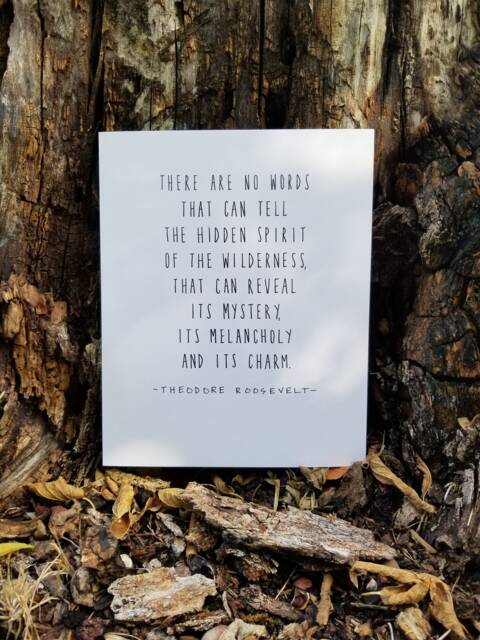 THERE ARE NO WORDS
THAT CAN TELL
THE HIDDEN SPIRIT
OF THE WILDERNESS,
THAT CAN REVEAL
ITS MYSTERY,
ITS MELANCHOLY
AND ITS CHARM.
~THEODORE ROOSEVELT~